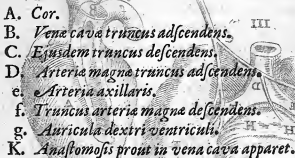 A. Cor.
B. Venæ cavæ truncus adſcendens.
C. Ejusdem truncus deſcendens.
D. Arteriæ magnæ truncus adſcendens.
e. Arteria axillaris.
f. Truncus arteriæ magnæ deſcendens.
g. Auricula dextri ventriculi.
K. Anaſtomoſis prout in vena cava apparet.
III